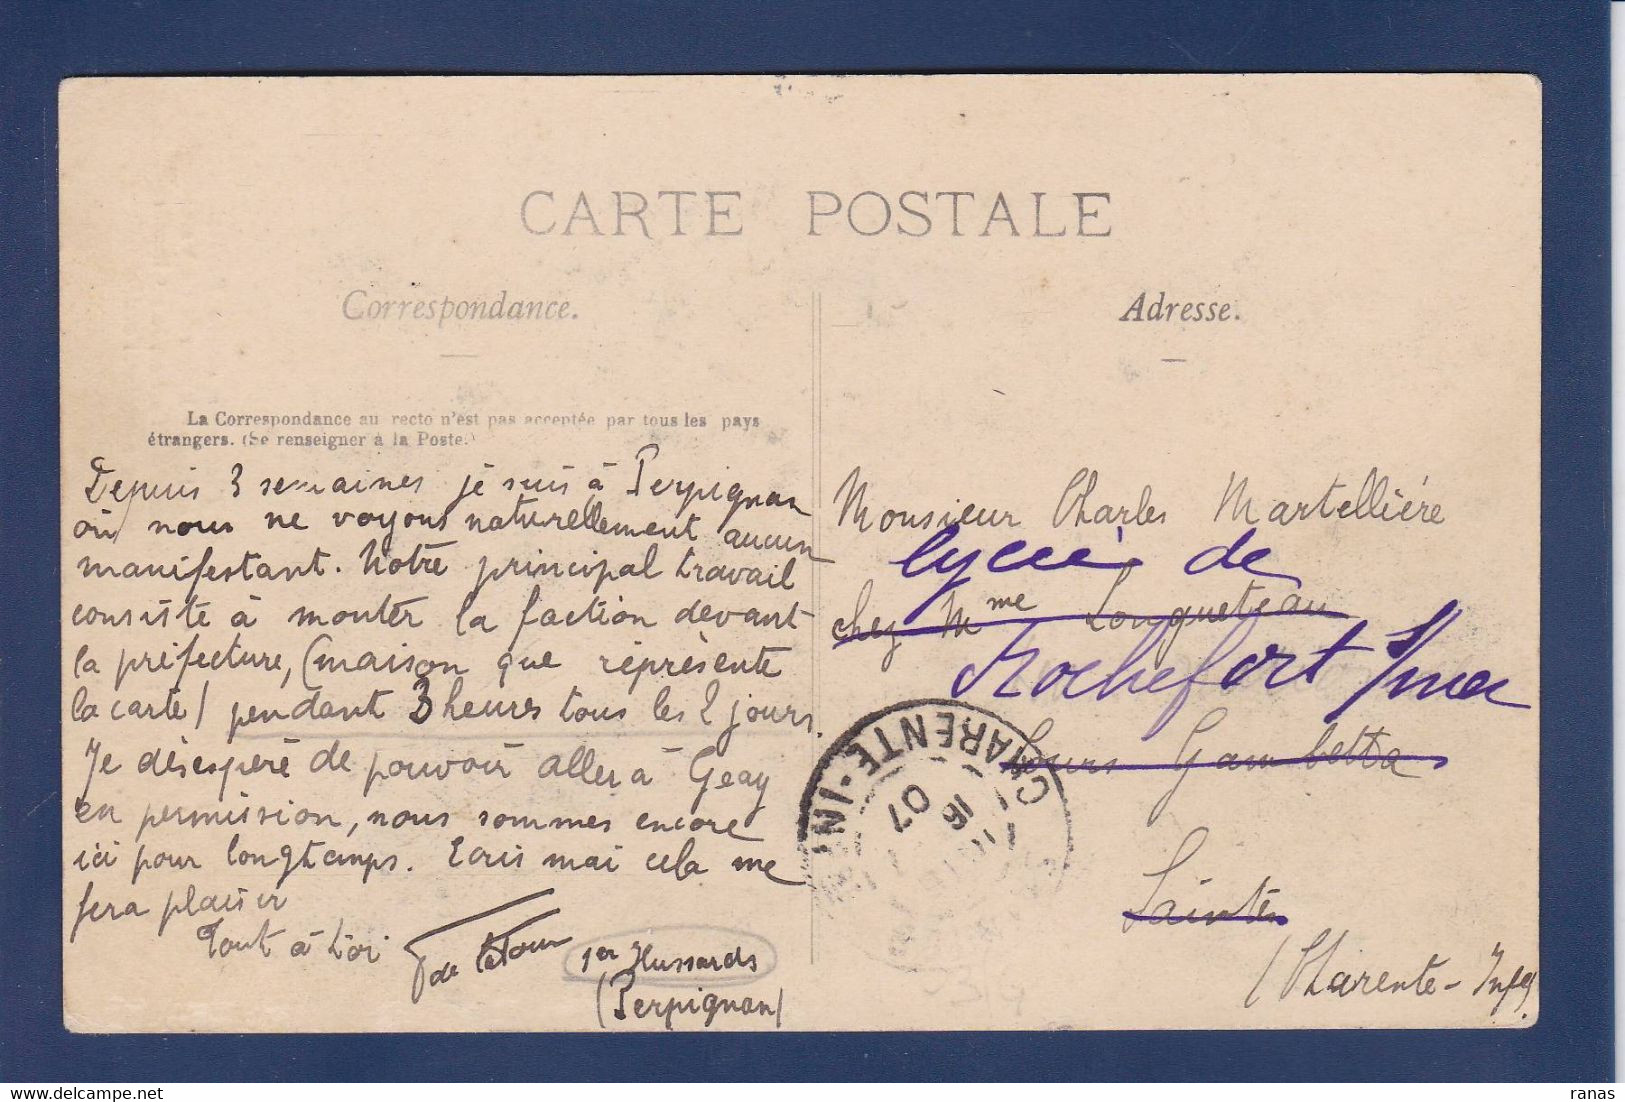 CARTE POSTALE
Correspondance.
La Correspondance au recto n'est pas acceptée par tous les pays
étrangers. (Se renseigner à la Poste.)
Depuis 3 semaines je suis à Perpignan
où nous ne voyons naturellement aucun
manifestant. Notre principal travail
consiste à monter la faction devant
la préfecture, (maison que représente
la carte) pendant 3 heures tous les 2 jours.
Je désespère de pouvoir aller à Geay
en permission, nous sommes encore
ici pour longtemps. Ecris mai cela me
fera plaisir
Tout à toi
de la Tour
1er Hussards
(Perpignan)
Adresse.
Monsieur Charles Martellière
lycée de
chez Mme Longueteau
Rochefort s/mer
Cours Gambetta
Saintes
(Charente-Infre)
CHARENTE-INF
16
07
ranas